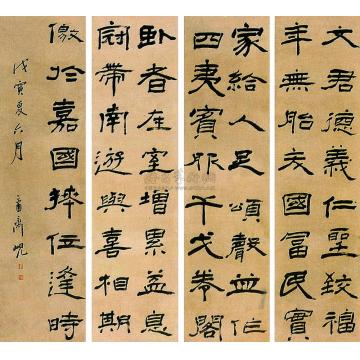 文君德義仁聖致福
年無胎夭國富民實
家給人足頌聲並作
四夷賓服干戈卷閣
卧者在室增累益息
冠帶南遊與喜相期
徼於嘉國拜位逢時
戊寅夏六月